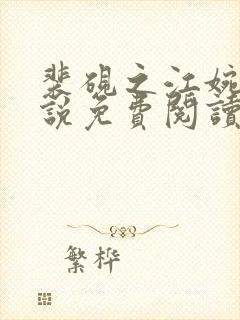 裴硯之江婉
說免費閱讀
繁桦